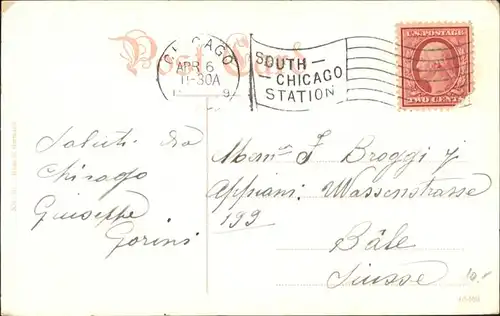 Post Card
CHICAGO
APR 6
11-30A
SOUTH –
– CHICAGO
STATION
U.S. POSTAGE
TWO CENTS
Saluti da
Chicago
Giuseppe
Gorini
F Broggi
Appiani Wassenstrasse
199
Bâle
Suisse